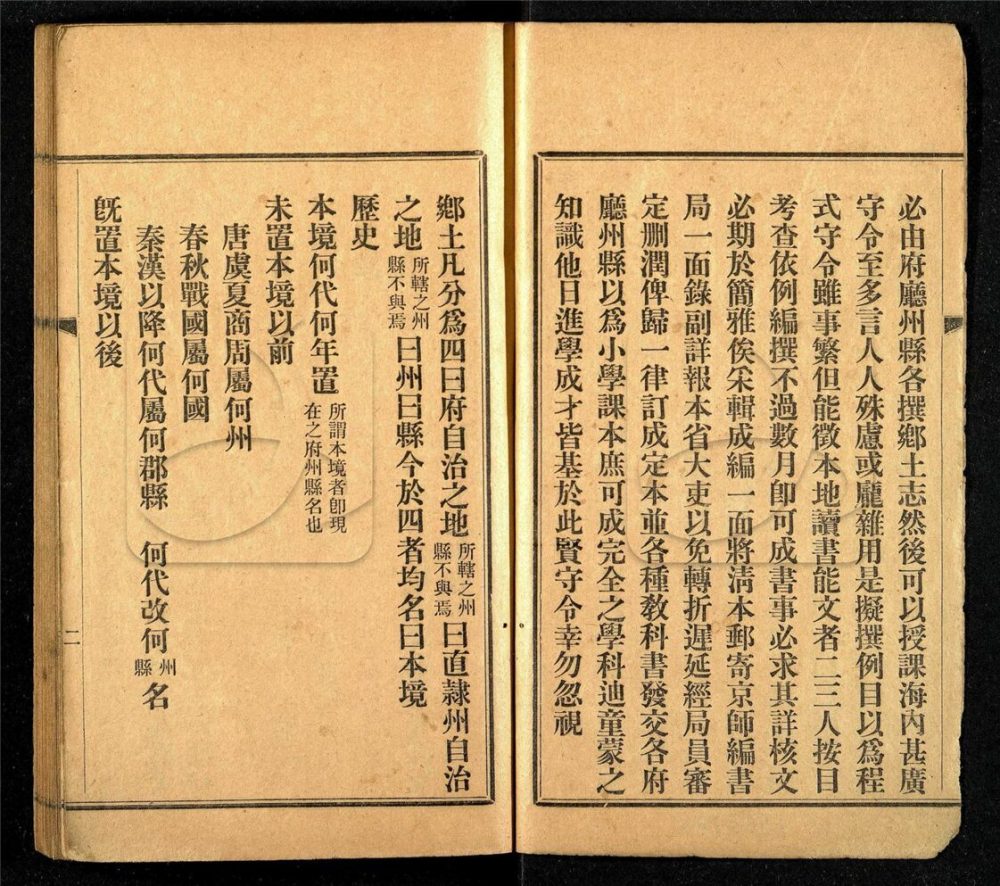 必由府廳州縣各撰鄉土志然後可以授課海內甚廣
守令至多言人人殊慮或龐雜用是擬撰例目以爲程
式守令雖事繁但能徵本地讀書能文者二三人按目
考查依例編撰不過數月卽可成書事必求其詳核文
必期於簡雅俟采輯成編一面將淸本郵寄京師編書
局一面錄副詳報本省大吏以免轉折遲延經局員審
定刪潤俾歸一律訂成定本並各種敎科書發交各府
廳州縣以爲小學課本庶可成完全之學科迪童蒙之
知識他日進學成才皆基於此賢守令幸勿忽視
鄉土凡分爲四曰府自治之地所轄之州縣不與焉曰直隷州自治
之地所轄之州縣不與焉曰州曰縣今於四者均名曰本境
歷史
本境何代何年置所謂本境者卽現在之府州縣名也
未置本境以前
唐虞夏商周屬何州
春秋戰國屬何國
秦漢以降何代屬何郡縣 何代改何州縣名
旣置本境以後
二